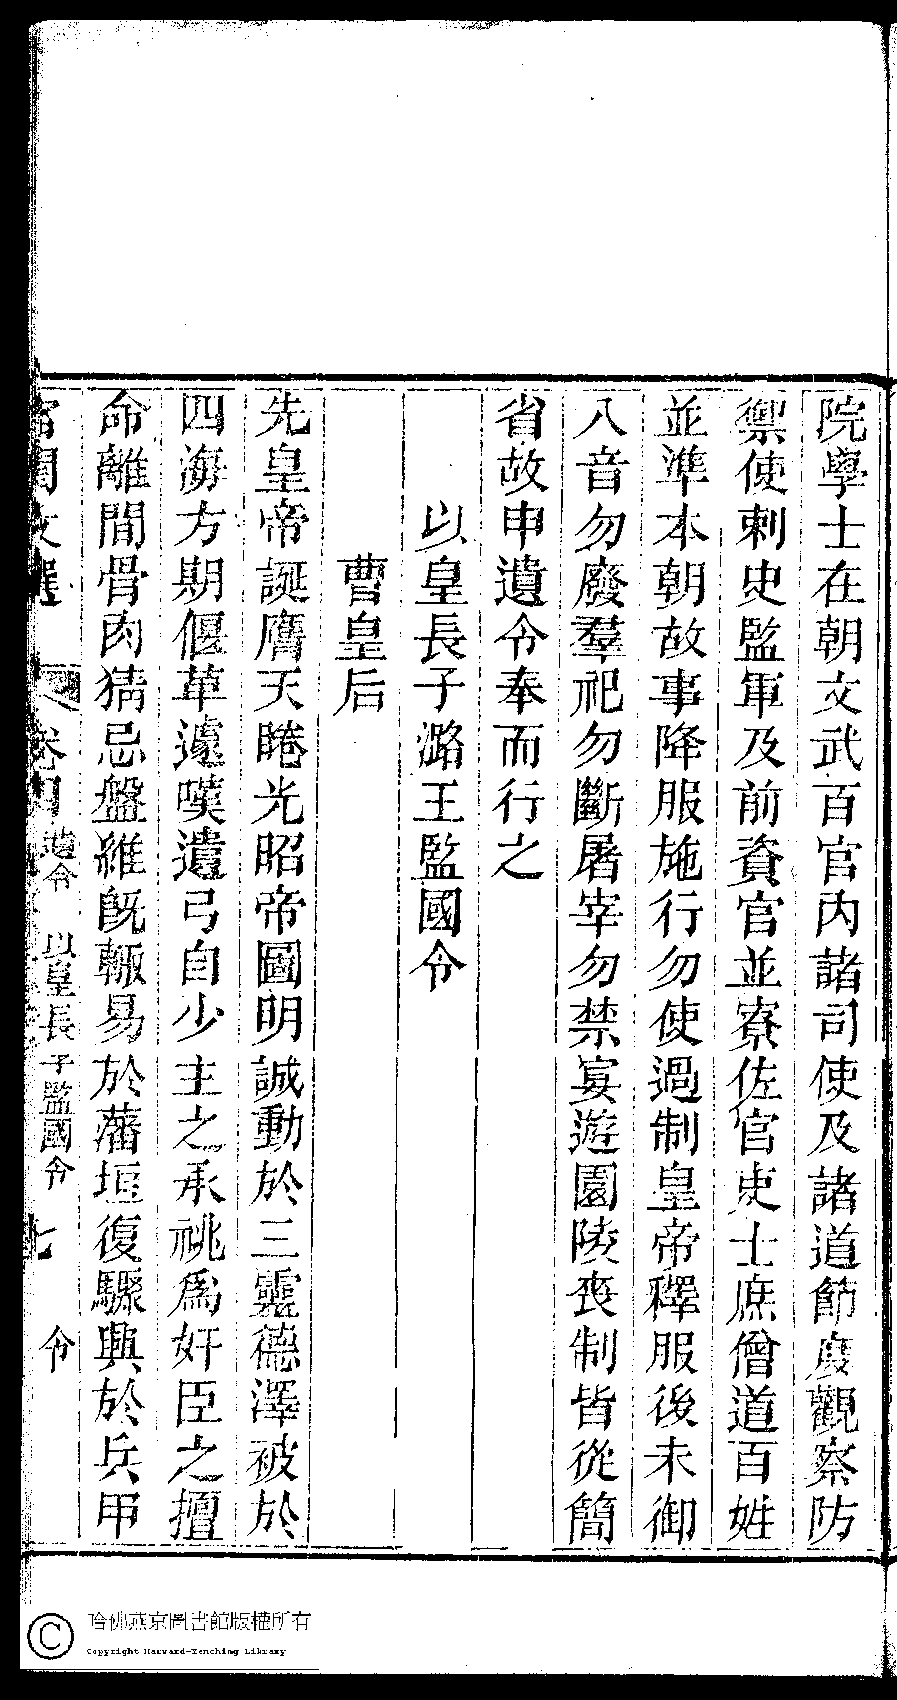 院學士在朝文武百官内諸司使及諸道節度觀察防
禦使刺史監軍及前資官並寮佐官吏士庶僧道百姓
並準本朝故事降服施行勿使過制皇帝釋服後未御
八音勿廢羣祀勿斷屠宰勿禁宴遊園陵喪制皆從簡
省故申遺令奉而行之
以皇長子潞王監國令
曹皇后
先皇帝誕膺天睠光昭帝圖明誠動於三靈德澤被於
四海方期偃革遽嘆遺弓自少主之承祧爲奸臣之擅
命離間骨肉猜忌磐維旣輙易於藩垣復驟興於兵甲
宮閨文選 卷四 遺令 以皇長子監國令 七 令
哈佛燕京圖書館版權所有
Copyright Harvard-Yenching Library